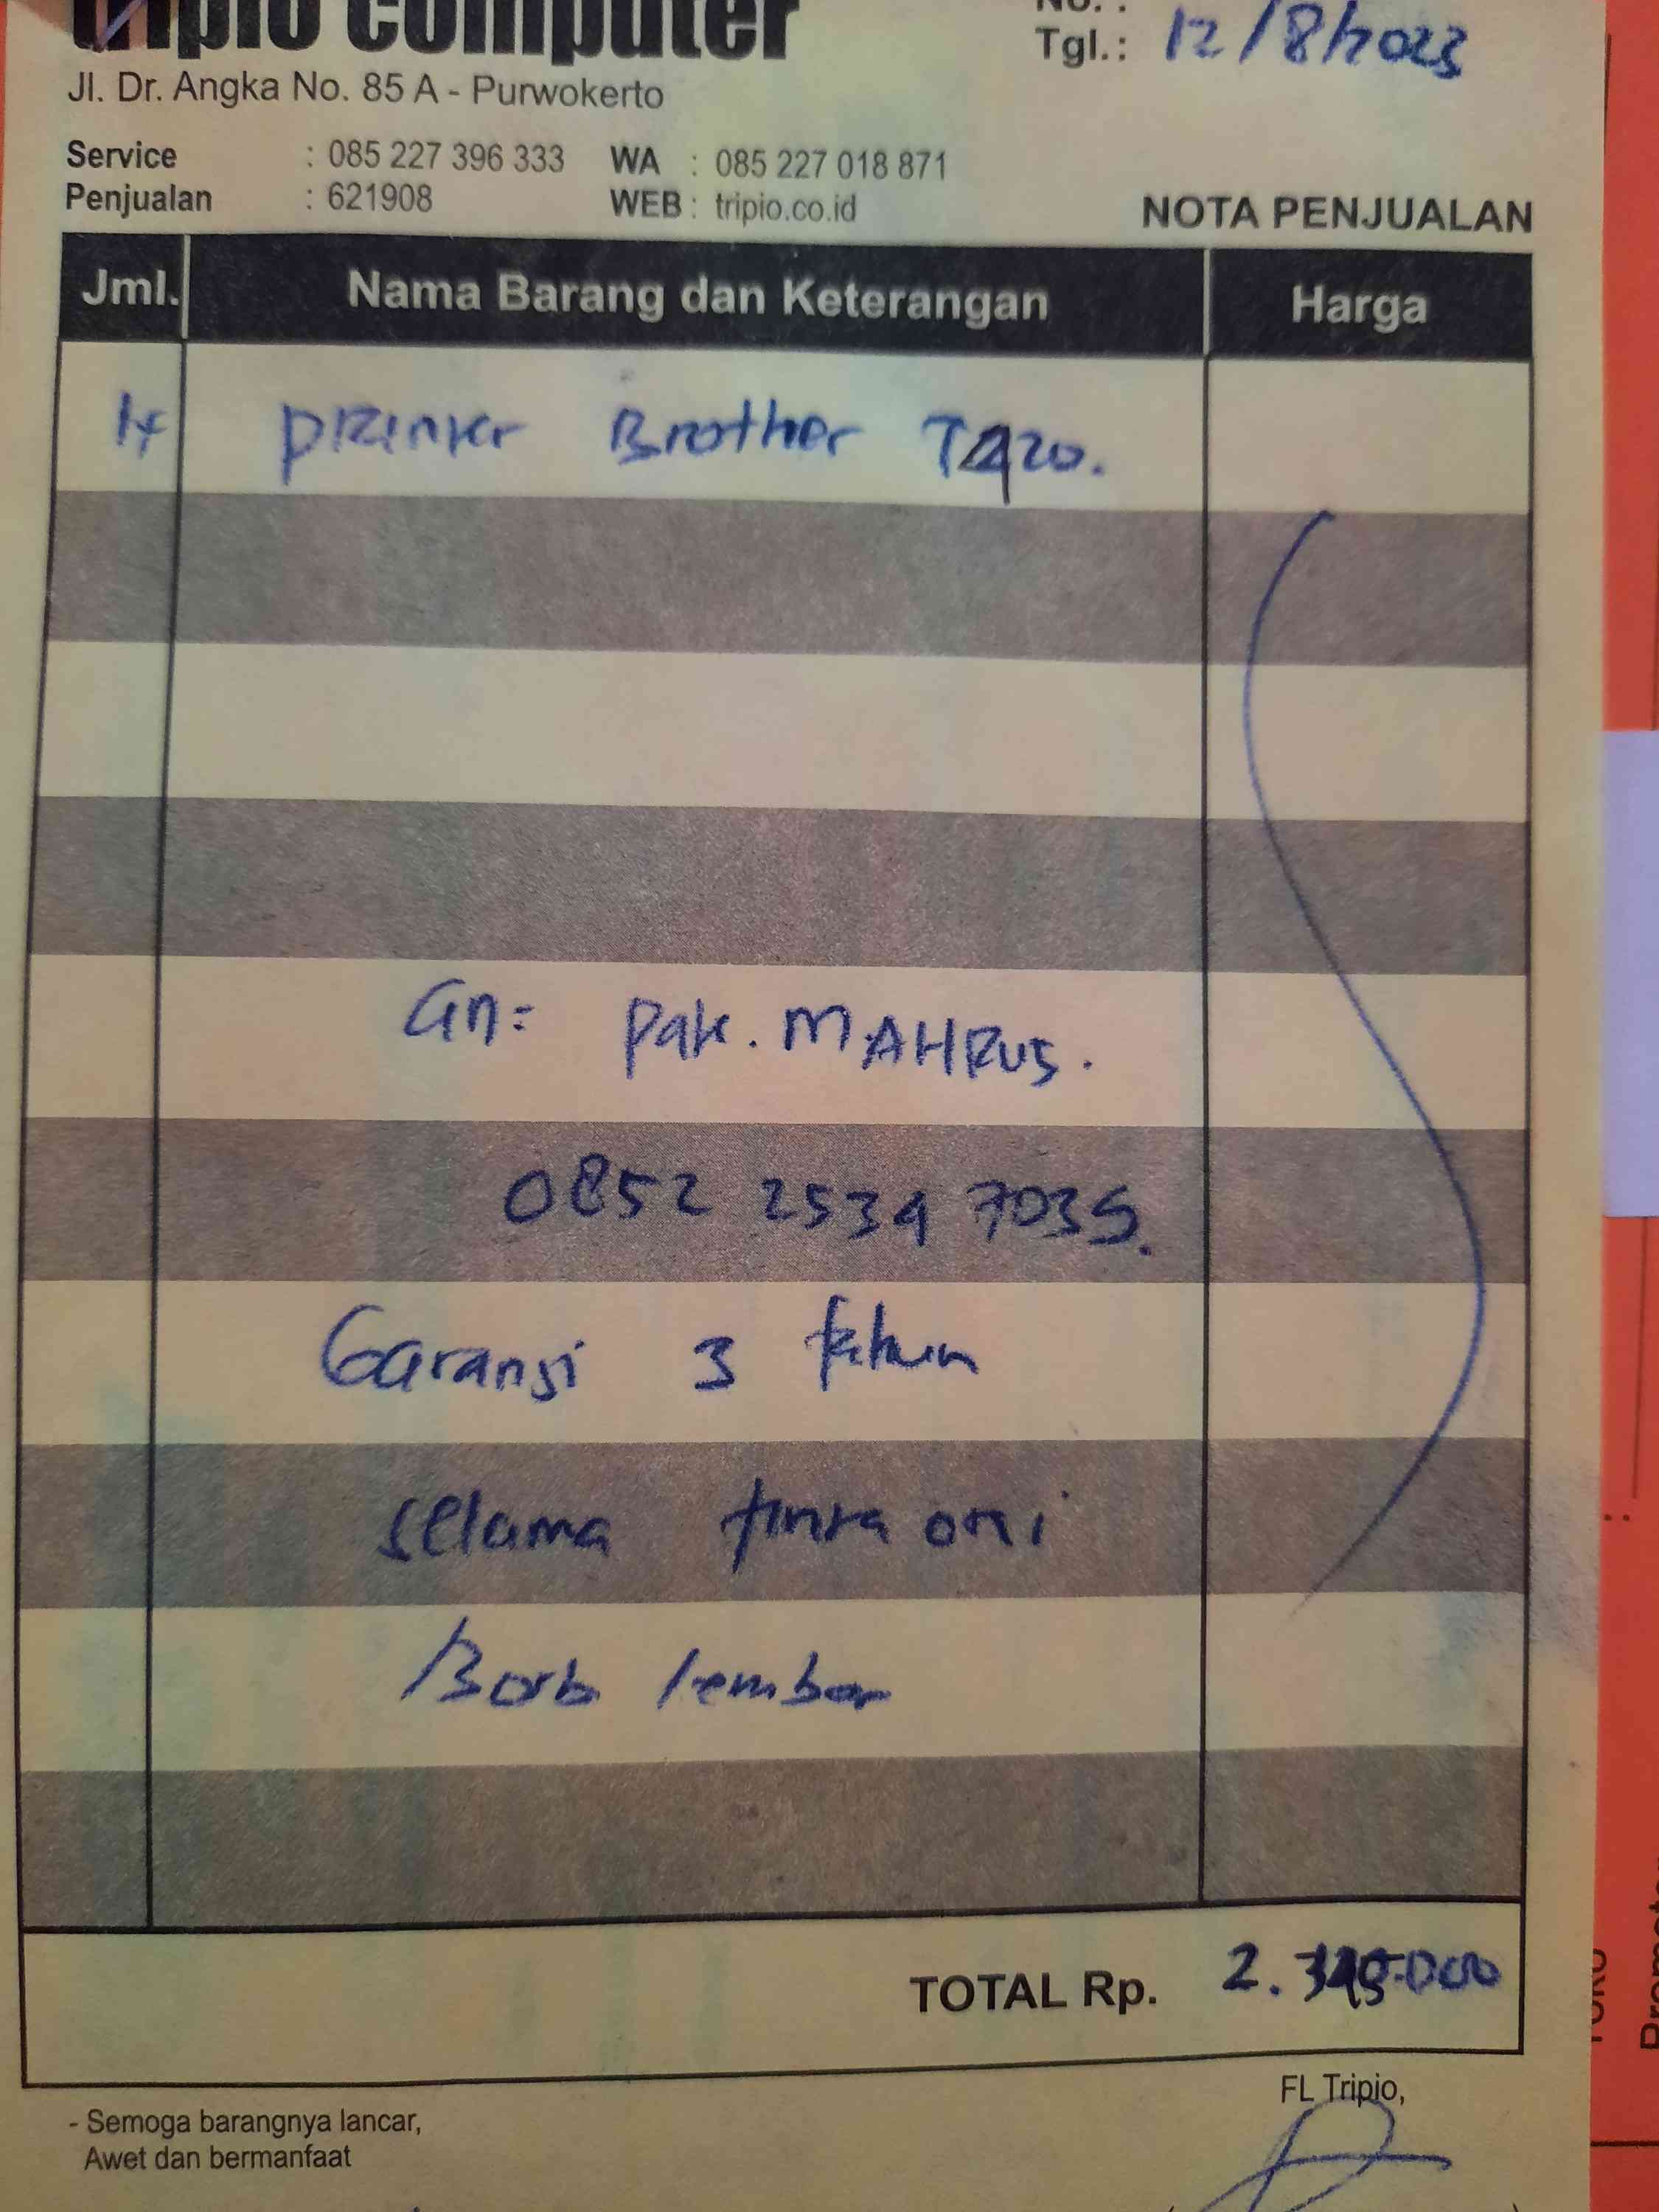 tripio computer
No. :
Tgl.: 12/8/2023
Jl. Dr. Angka No. 85 A - Purwokerto
Service : 085 227 396 333 WA : 085 227 018 871
Penjualan : 621908 WEB : tripio.co.id
NOTA PENJUALAN
Jml. Nama Barang dan Keterangan Harga
1x Printer Brother T420.
an= Pak. MAHRUS.
0852 2534 7035.
Garansi 3 tahun
selama tinta ori
lembar
TOTAL Rp. 2.345.000
FL Tripio,
- Semoga barangnya lancar,
Awet dan bermanfaat